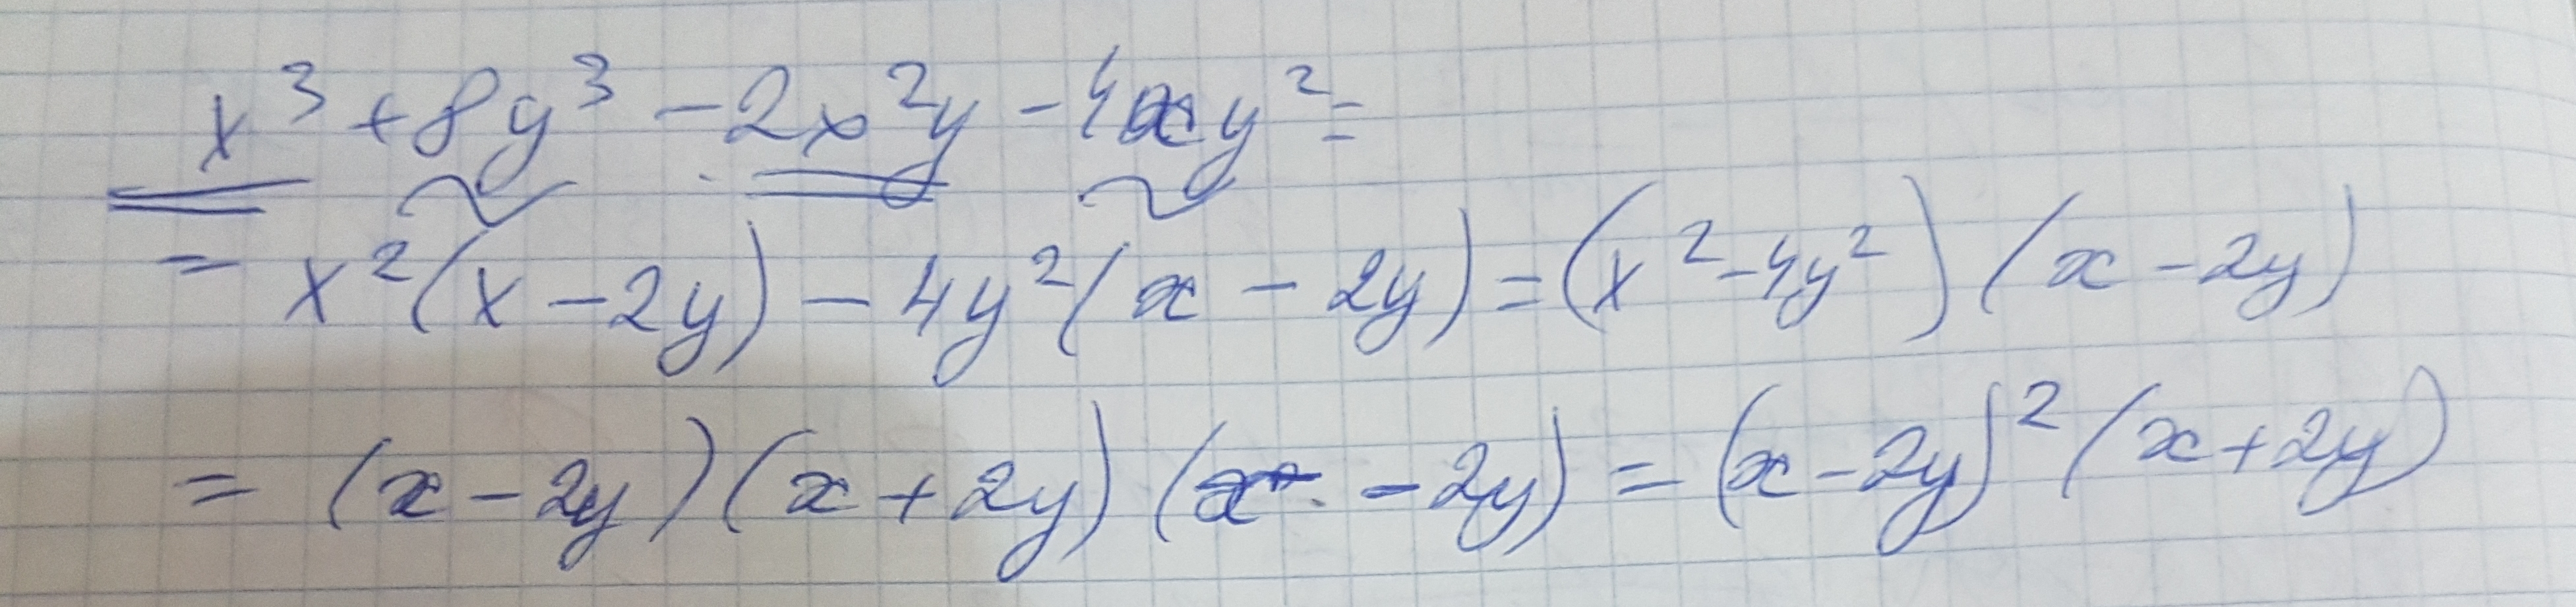 x³ + 8y³ - 2x²y - 4xy² =
= x²(x - 2y) - 4y²(x - 2y) = (x² - 4y²)(x - 2y)
= (x - 2y)(x + 2y)(x - 2y) = (x - 2y)²(x + 2y)